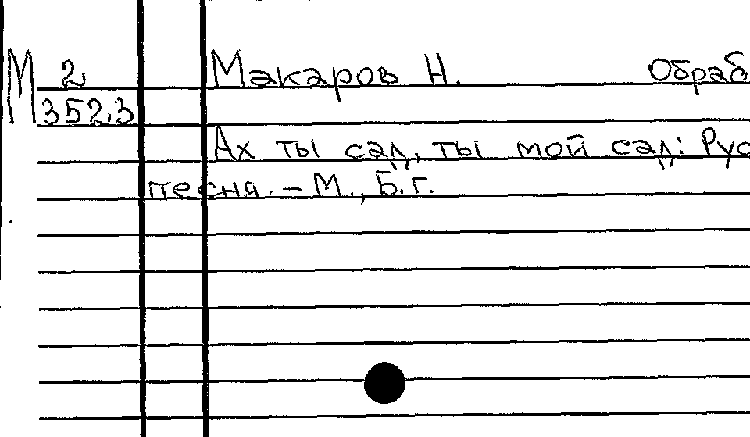 М 2 Макаров Н. Обраб
352.3
Ах ты сад, ты мой сад: Рус
песня. - М., Б.г.